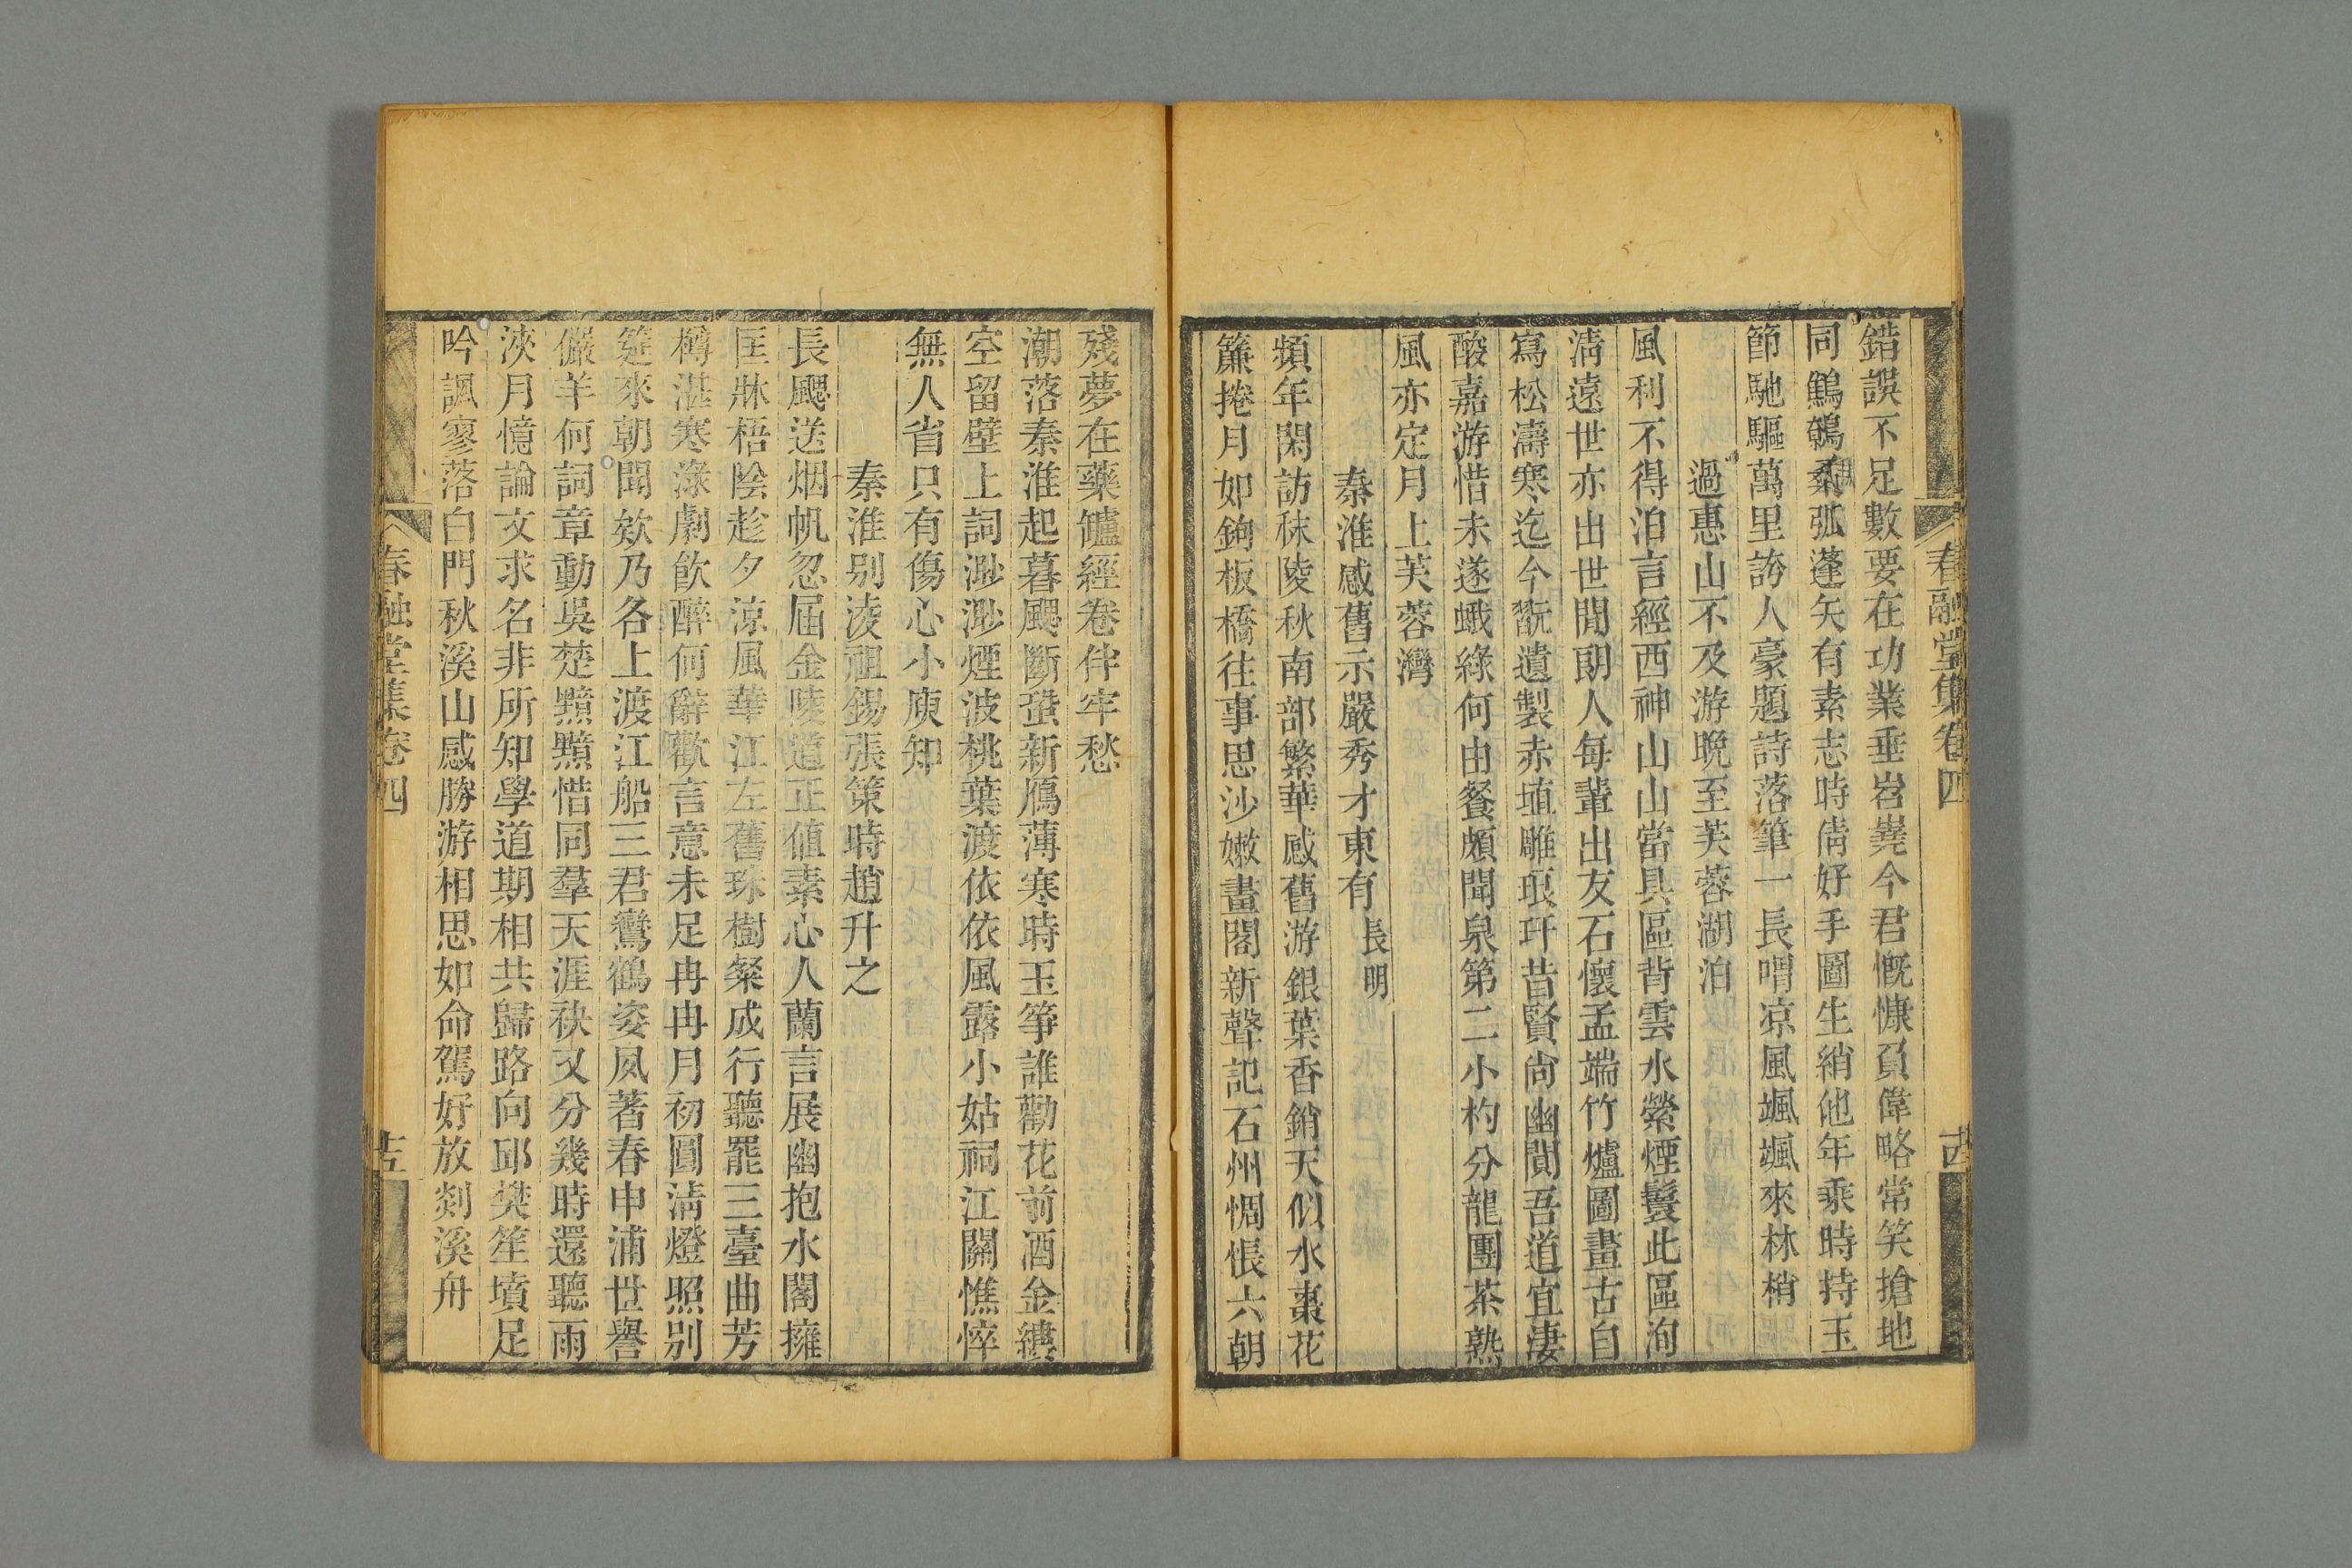 春融堂集卷四
古
錯誤不足數要在功業垂岧嶤今君慨慷負偉略常笑搶地
同鷦鷯桑弧蓬矢有素志時倩好手圖生綃他年乘時持玉
節馳驅萬里誇人豪題詩落筆一長喟凉風颯颯來林梢
過惠山不及游晚至芙蓉湖泊
風利不得泊言經西神山山當具區背雲水縈煙鬟此區洵
清遠世亦出世閒朗人每輩出友石懷孟端竹爐圖畫古自
寫松濤寒迄今翫遺製赤埴雕琅玕昔賢尚幽閒吾道宜淒
酸嘉游惜未遂蛾綠何由餐頗聞泉第二小杓分龍團茶熟
風亦定月上芙蓉灣
秦淮感舊示嚴秀才東有長明
頻年閑訪秣陵秋南部繁華感舊游銀葉香銷天似水棗花
簾捲月如鉤板橋往事思沙嫩畫閣新聲記石州惆悵六朝
殘夢在藥罏經卷伴牢愁
潮落秦淮起暮颸斷蛩新鴈薄寒時玉箏誰勸花前酒金縷
空留壁上詞渺渺煙波桃葉渡依依風露小姑祠江關憔悴
無人省只有傷心小庾知
秦淮别淩祖錫張策時趙升之
長颸送烟帆忽屆金陵道正値素心人蘭言展幽抱水閣擁
匡牀梧陰趁夕涼風華江左舊珠樹粲成行聽罷三臺曲芳
樽湛寒淥劇飲醉何辭歡言意未足冉冉月初圓清燈照别
筵來朝聞欸乃各上渡江船三君鸞鶴姿夙著春申浦世譽
儼羊何詞章動吳楚黯黯惜同羣天涯袂又分幾時還聽雨
浹月憶論文求名非所知學道期相共歸路向邱樊笙墳足
吟諷寥落白門秋溪山感勝游相思如命駕好放剡溪舟
春融堂集卷四